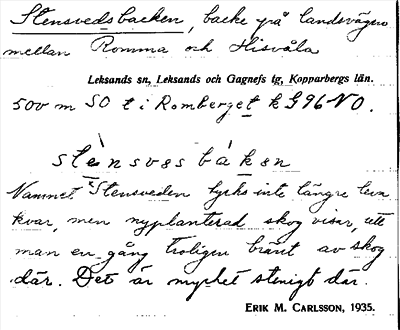 Stensvedsbacken, backe på landsvägen
mellan Romma och Hisvåla
Leksands sn, Leksands och Gagnefs tg, Kopparbergs län.
500 m SO t i Romberget k G96-NO.
stènsvesbàkɘn
Namnet Stensveden tycks inte längre leva
kvar, men nyplanterad skog visar, att
man en gång troligen bränt av skog
där. Det är mycket stenigt där.
ERIK M. CARLSSON, 1935.